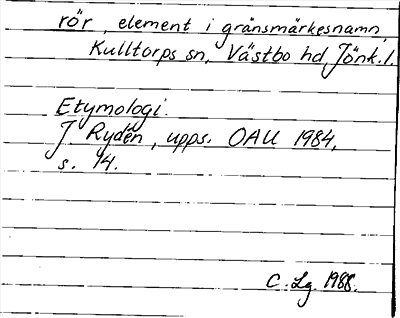 rör, element i gränsmärkesnamn,
Kulltorps sn, Västbo hd, Jönk. l.
Etymologi.
J. Rydén, upps. OAU 1984,
s. 14.
C. Lg. 1988.